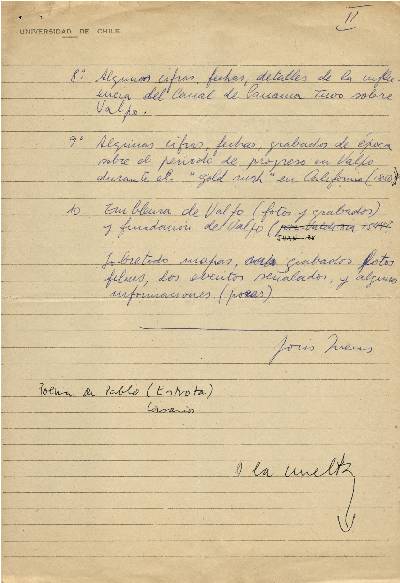 II
UNIVERSIDAD DE CHILE
8° Algunas cifras, fechas, detalles de la influ-
encia del Canal de Panama tuvo sobre
Valpo.
9° Algunas cifras, fechas, grabados de época
sobre el periodo de progreso en Valpo
durante el "gold rush" en California
10 Emblema de Valpo (fotos y grabados)
y fundación de Valpo (
Sobretodo mapas, grabados fotos
films, los eventos señalados, y algunas
informaciones (pocas)
Joris Ivens
Poema de Pablo (Estrofa)
Corsarios
a la vuelta